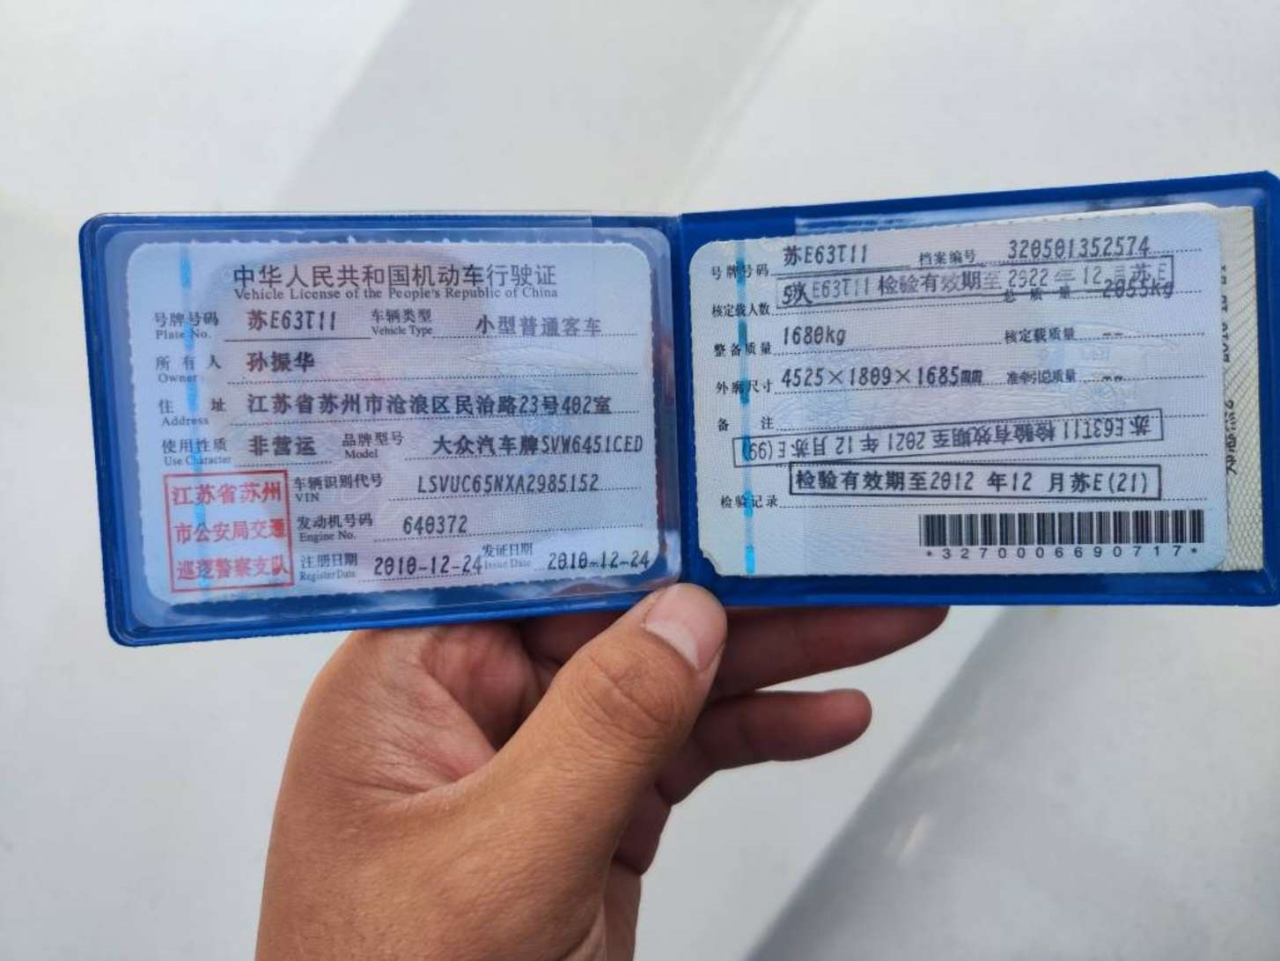 中华人民共和国机动车行驶证
Vehicle License of the People's Republic of China
号牌号码 苏E63T11 车辆类型 小型普通客车
Plate No. Vehicle Type
所有人 孙振华
Owner
住址 江苏省苏州市沧浪区民治路23号402室
Address
使用性质 非营运 品牌型号 大众汽车牌SVW6451CED
Use Character Model
江苏省苏州
市公安局交通
巡逻警察支队
车辆识别代号 LSVUC65NXA2985152
VIN
发动机号码 640372
Engine No.
注册日期 2010-12-24 发证日期 2010-12-24
Register Date Issue Date
号牌号码 苏E63T11 档案编号 320501352574
苏E63T11 检验有效期至 2022 年 12 月 苏E
核定载人数 5人 总质量 2055kg
整备质量 1680kg 核定载质量 --
外廓尺寸 4525×1809×1685mm 准牵引总质量 --
备注
苏E63T11 检验有效期至 2021 年 12 月 苏E(99)
检验有效期至2012 年 12 月苏E(21)
检验记录
*3270006690717*